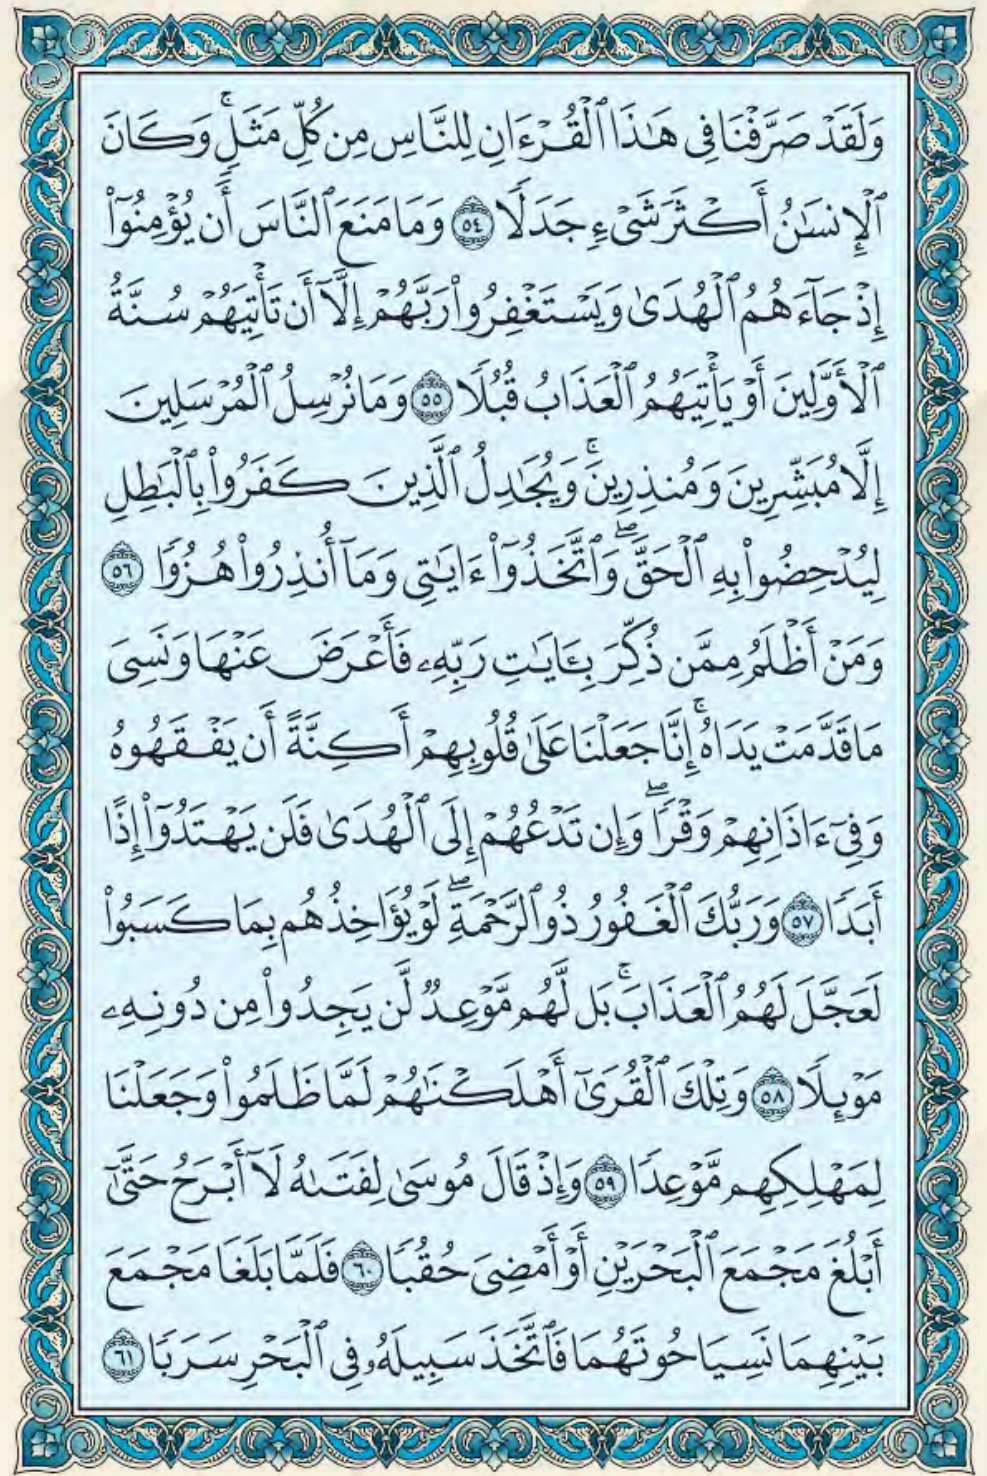 وَلَقَدْ صَرَّفْنَا فِي هَـٰذَا ٱلْقُرْءَانِ لِلنَّاسِ مِن كُلِّ مَثَلٍۚ وَكَانَ
ٱلْإِنسَـٰنُ أَكْثَرَ شَىْءٍ جَدَلًا ٥٤ وَمَا مَنَعَ ٱلنَّاسَ أَن يُؤْمِنُوٓا۟
إِذْ جَآءَهُمُ ٱلْهُدَىٰ وَيَسْتَغْفِرُوا۟ رَبَّهُمْ إِلَّآ أَن تَأْتِيَهُمْ سُنَّةُ
ٱلْأَوَّلِينَ أَوْ يَأْتِيَهُمُ ٱلْعَذَابُ قُبُلًا ٥٥ وَمَا نُرْسِلُ ٱلْمُرْسَلِينَ
إِلَّا مُبَشِّرِينَ وَمُنذِرِينَۚ وَيُجَـٰدِلُ ٱلَّذِينَ كَفَرُوا۟ بِٱلْبَـٰطِلِ
لِيُدْحِضُوا۟ بِهِ ٱلْحَقَّۖ وَٱتَّخَذُوٓا۟ ءَايَـٰتِى وَمَآ أُنذِرُوا۟ هُزُوًا ٥٦
وَمَنْ أَظْلَمُ مِمَّن ذُكِّرَ بِـَٔايَـٰتِ رَبِّهِۦ فَأَعْرَضَ عَنْهَا وَنَسِىَ
مَا قَدَّمَتْ يَدَاهُۚ إِنَّا جَعَلْنَا عَلَىٰ قُلُوبِهِمْ أَكِنَّةً أَن يَفْقَهُوهُ
وَفِىٓ ءَاذَانِهِمْ وَقْرًاۖ وَإِن تَدْعُهُمْ إِلَى ٱلْهُدَىٰ فَلَن يَهْتَدُوٓا۟ إِذًا
أَبَدًا ٥٧ وَرَبُّكَ ٱلْغَفُورُ ذُو ٱلرَّحْمَةِۖ لَوْ يُؤَاخِذُهُم بِمَا كَسَبُوا۟
لَعَجَّلَ لَهُمُ ٱلْعَذَابَۚ بَل لَّهُم مَّوْعِدٌ لَّن يَجِدُوا۟ مِن دُونِهِۦ
مَوْئِلًا ٥٨ وَتِلْكَ ٱلْقُرَىٰٓ أَهْلَكْنَـٰهُمْ لَمَّا ظَلَمُوا۟ وَجَعَلْنَا
لِمَهْلِكِهِم مَّوْعِدًا ٥٩ وَإِذْ قَالَ مُوسَىٰ لِفَتَىٰهُ لَآ أَبْرَحُ حَتَّىٰٓ
أَبْلُغَ مَجْمَعَ ٱلْبَحْرَيْنِ أَوْ أَمْضِىَ حُقُبًا ٦٠ فَلَمَّا بَلَغَا مَجْمَعَ
بَيْنِهِمَا نَسِيَا حُوتَهُمَا فَٱتَّخَذَ سَبِيلَهُۥ فِى ٱلْبَحْرِ سَرَبًا ٦١